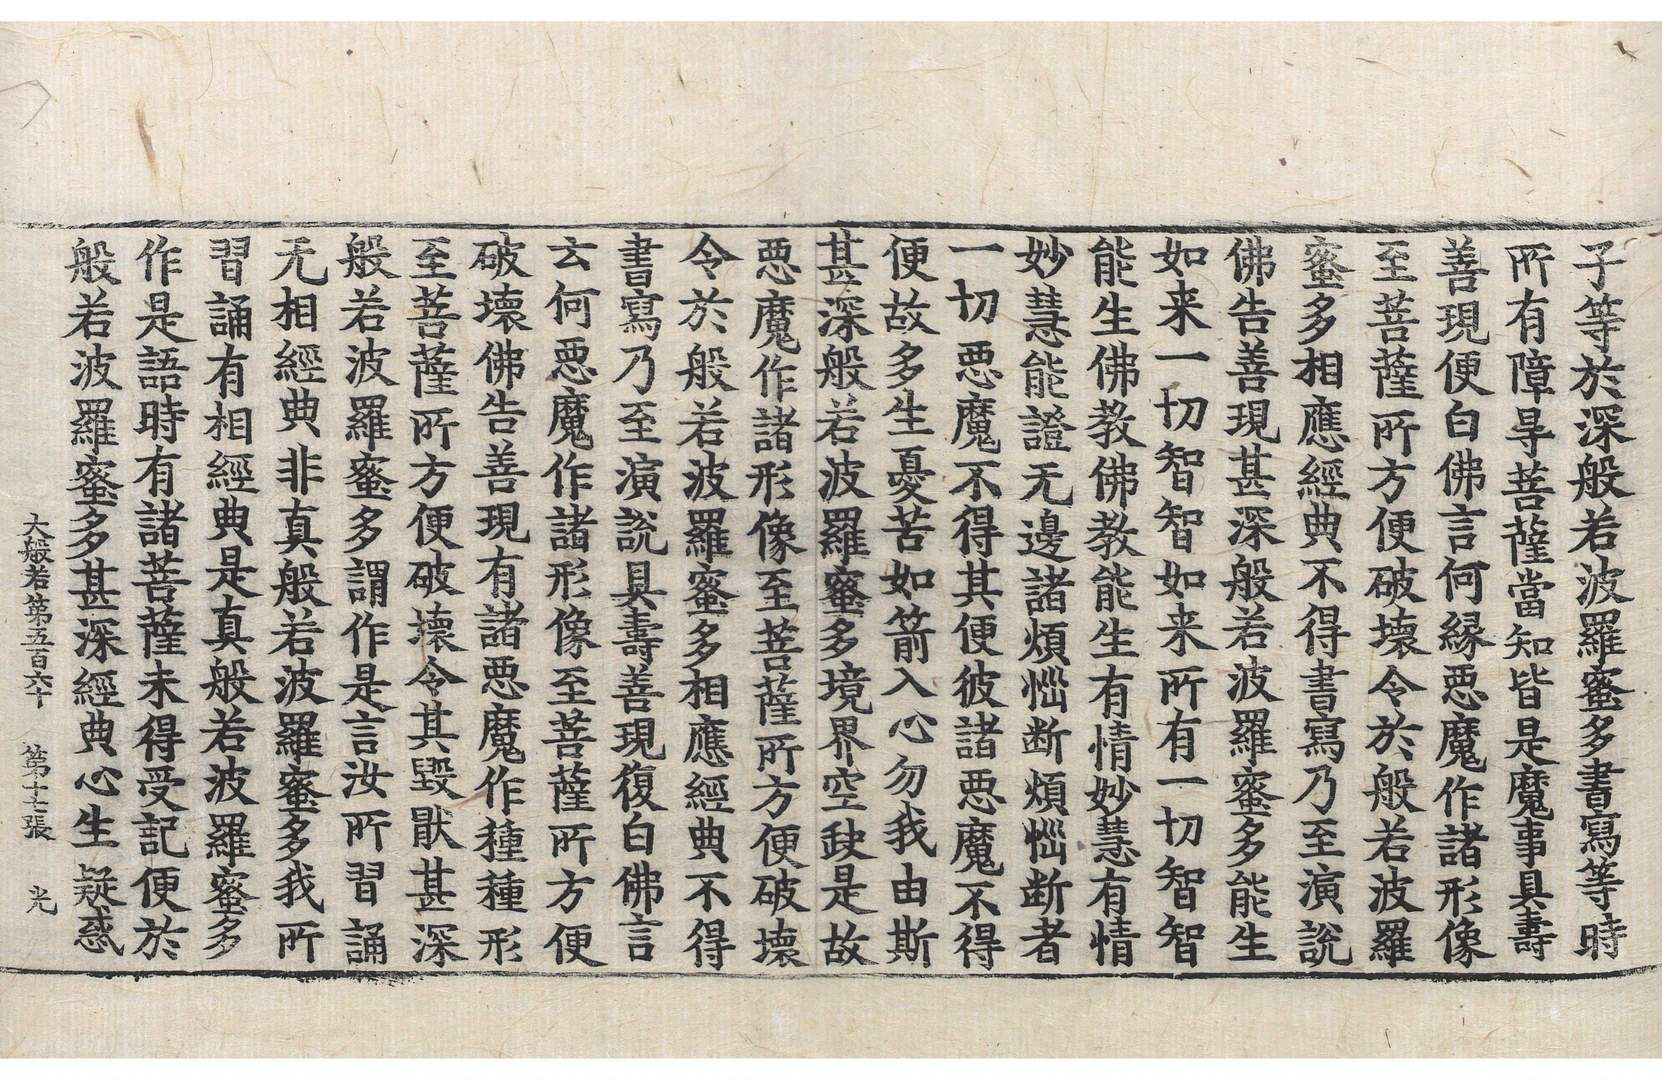 子等於深般若波羅蜜多書寫等時
所有障㝵菩薩當知皆是魔事具壽
善現便白佛言何緣惡魔作諸形像
至菩薩所方便破壞令於般若波羅
蜜多相應經典不得書寫乃至演說
佛告善現甚深般若波羅蜜多能生
如来一切智智如来所有一切智智
能生佛教佛教能生有情妙慧有情
妙慧能證无邊諸煩惱断煩惱断者
一切惡魔不得其便彼諸惡魔不得
便故多生憂苦如箭入心勿我由斯
甚深般若波羅蜜多境界空缺是故
惡魔作諸形像至菩薩所方便破壞
令於般若波羅蜜多相應經典不得
書寫乃至演說具壽善現復白佛言
云何惡魔作諸形像至菩薩所方便
破壞佛告善現有諸惡魔作種種形
至菩薩所方便破壞令其毀猒甚深
般若波羅蜜多謂作是言汝所習誦
无相經典非真般若波羅蜜多我所
習誦有相經典是真般若波羅蜜多
作是語時有諸菩薩未得受記便於
般若波羅蜜多甚深經典心生疑惑
大般若第五百六十 第十七張 光